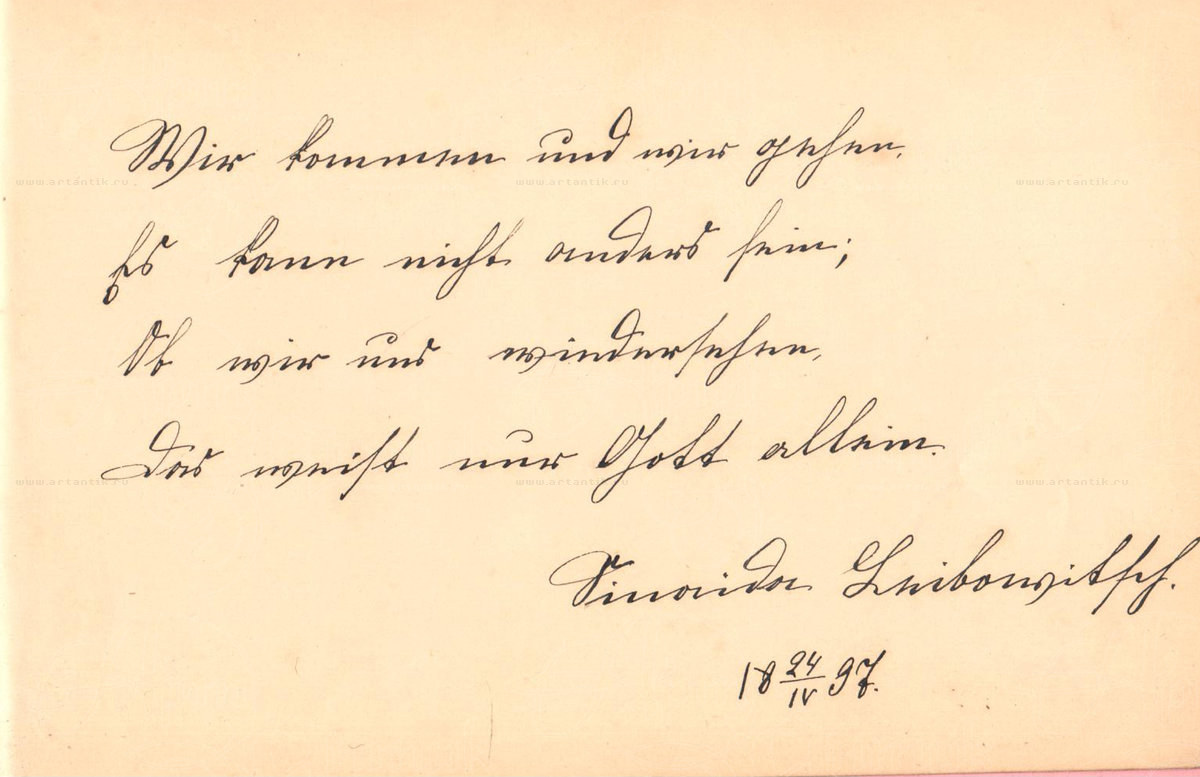 Wir kommen und wir gehen,
Es kann nicht anders sein;
Ob wir uns wiedersehen,
Das weist nur Gott allein.
Sinaida Leibowitsch.
18 24/IV 97.
www.artantik.ru www.artantik.ru www.artantik.ru
www.artantik.ru www.artantik.ru www.artantik.ru